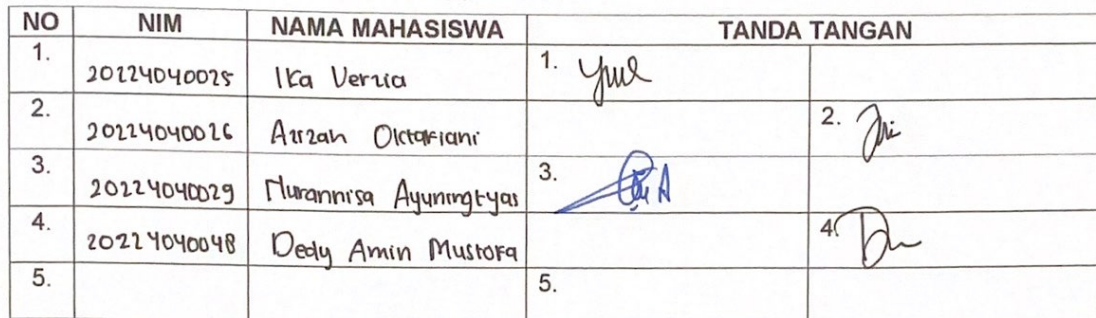 NO NIM NAMA MAHASISWA TANDA TANGAN
1. 20224040025 Ika Verzia 1.
2. 20224040026 Aurzah Oktafiani 2.
3. 20224040029 Nurannisa Ayuningtyas 3.
4. 20224040048 Dedy Amin Mustofa 4.
5. 5.